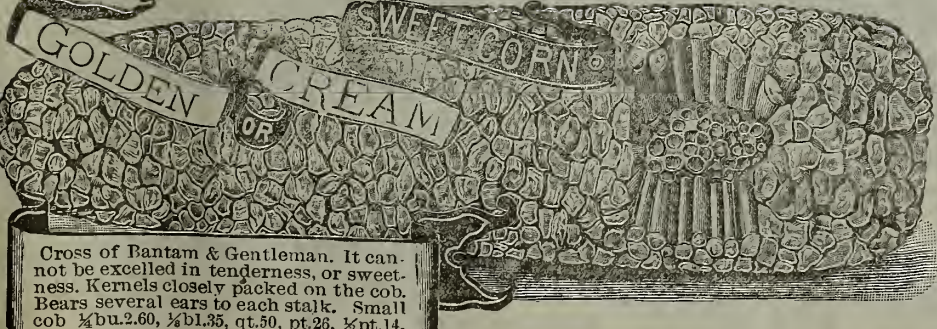 GOLDEN
OR
CREAM
SWEET CORN
Cross of Bantam & Gentleman. It can-
not be excelled in tenderness, or sweet-
ness. Kernels closely packed on the cob.
Bears several ears to each stalk. Small
cob ¼bu.2.60, ⅛bl.35, qt.50, pt.26, ½pt.14.